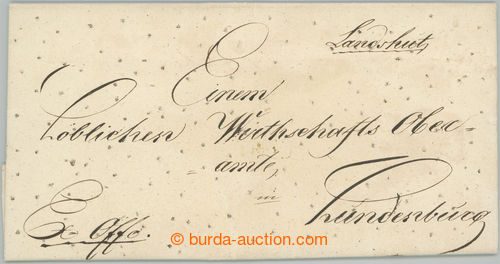 Landshut
Einem
Löblichen Wirthschafts Ober=
=amte,
in
Lundenburg
Ex Offo.
burda-auction.com